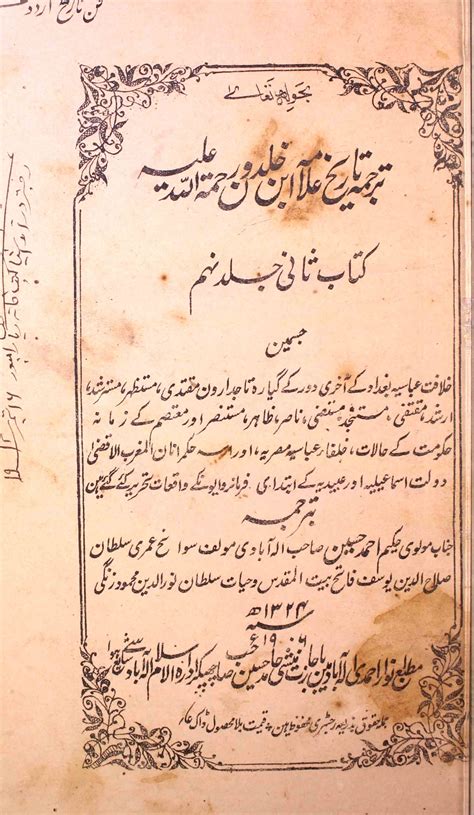 فن تاریخ اردو
بجواہر تعالے
ترجمہ تاریخ علامہ ابن خلدون رحمۃ اللہ علیہ
کتاب ثانی جلد نہم
جسمین
خلافت عباسیہ بغداد کے آخری دور کے گیارہ تاجدارون مقتدی، مستظہر، مسترشد،
راشد مقتفی، مستنجد، مستضی، ناصر، ظاہر، مستنصر اور معتصم کے زمانہ
حکومت کے حالات، خلفار عباسیہ مصریہ، اور حکمرانان المغرب الاقصی
دولت اسماعیلیہ اور عبیدیہ کے ابتدائی فرمانرواؤن کے واقعات تحریر کئے گئے ہین
ترجمہ
جناب مولوی حکیم احمد حسین صاحب الہ آبادی مولف سوانح عمری سلطان
صلاح الدین یوسف فاتح بیت المقدس وحیات سلطان نور الدین محمود زنگی
۱۳۲۴ھ
سنہ
۱۹۰۶ء
مطبع نور احمدی الہ آباد مین باجازت منشی حامد حسین صاحب چھپکر ادارہ الاسلام الہ آباد سے شایع ہوا
جملہ حقوق بذریعہ رجسٹری محفوظ ہین قیمت بلا محصول ڈاک